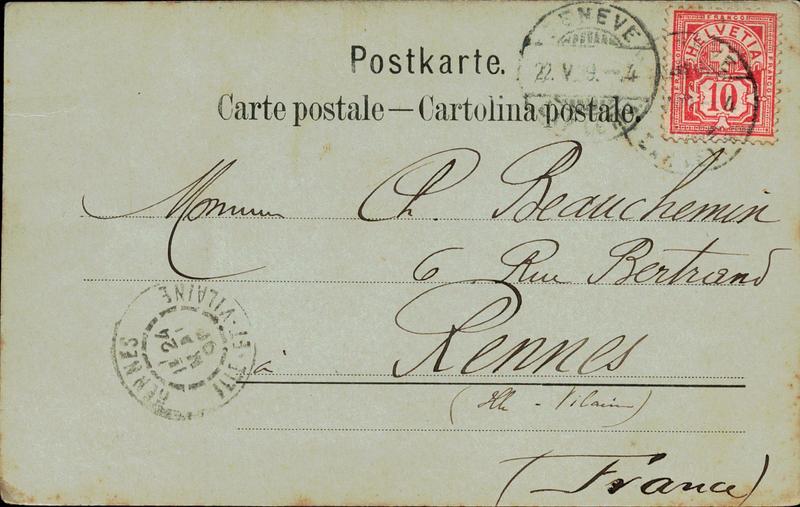 Postkarte.
Carte postale — Cartolina postale.
GENEVE
22. V. 9. — 4
FRANCO
HELVETIA
10
Monsieur Ch. Beauchemin
6 Rue Bertrand
à Rennes
(Ille - Vilaine)
(France)
RENNES
ILLE-ET-VILAINE
24